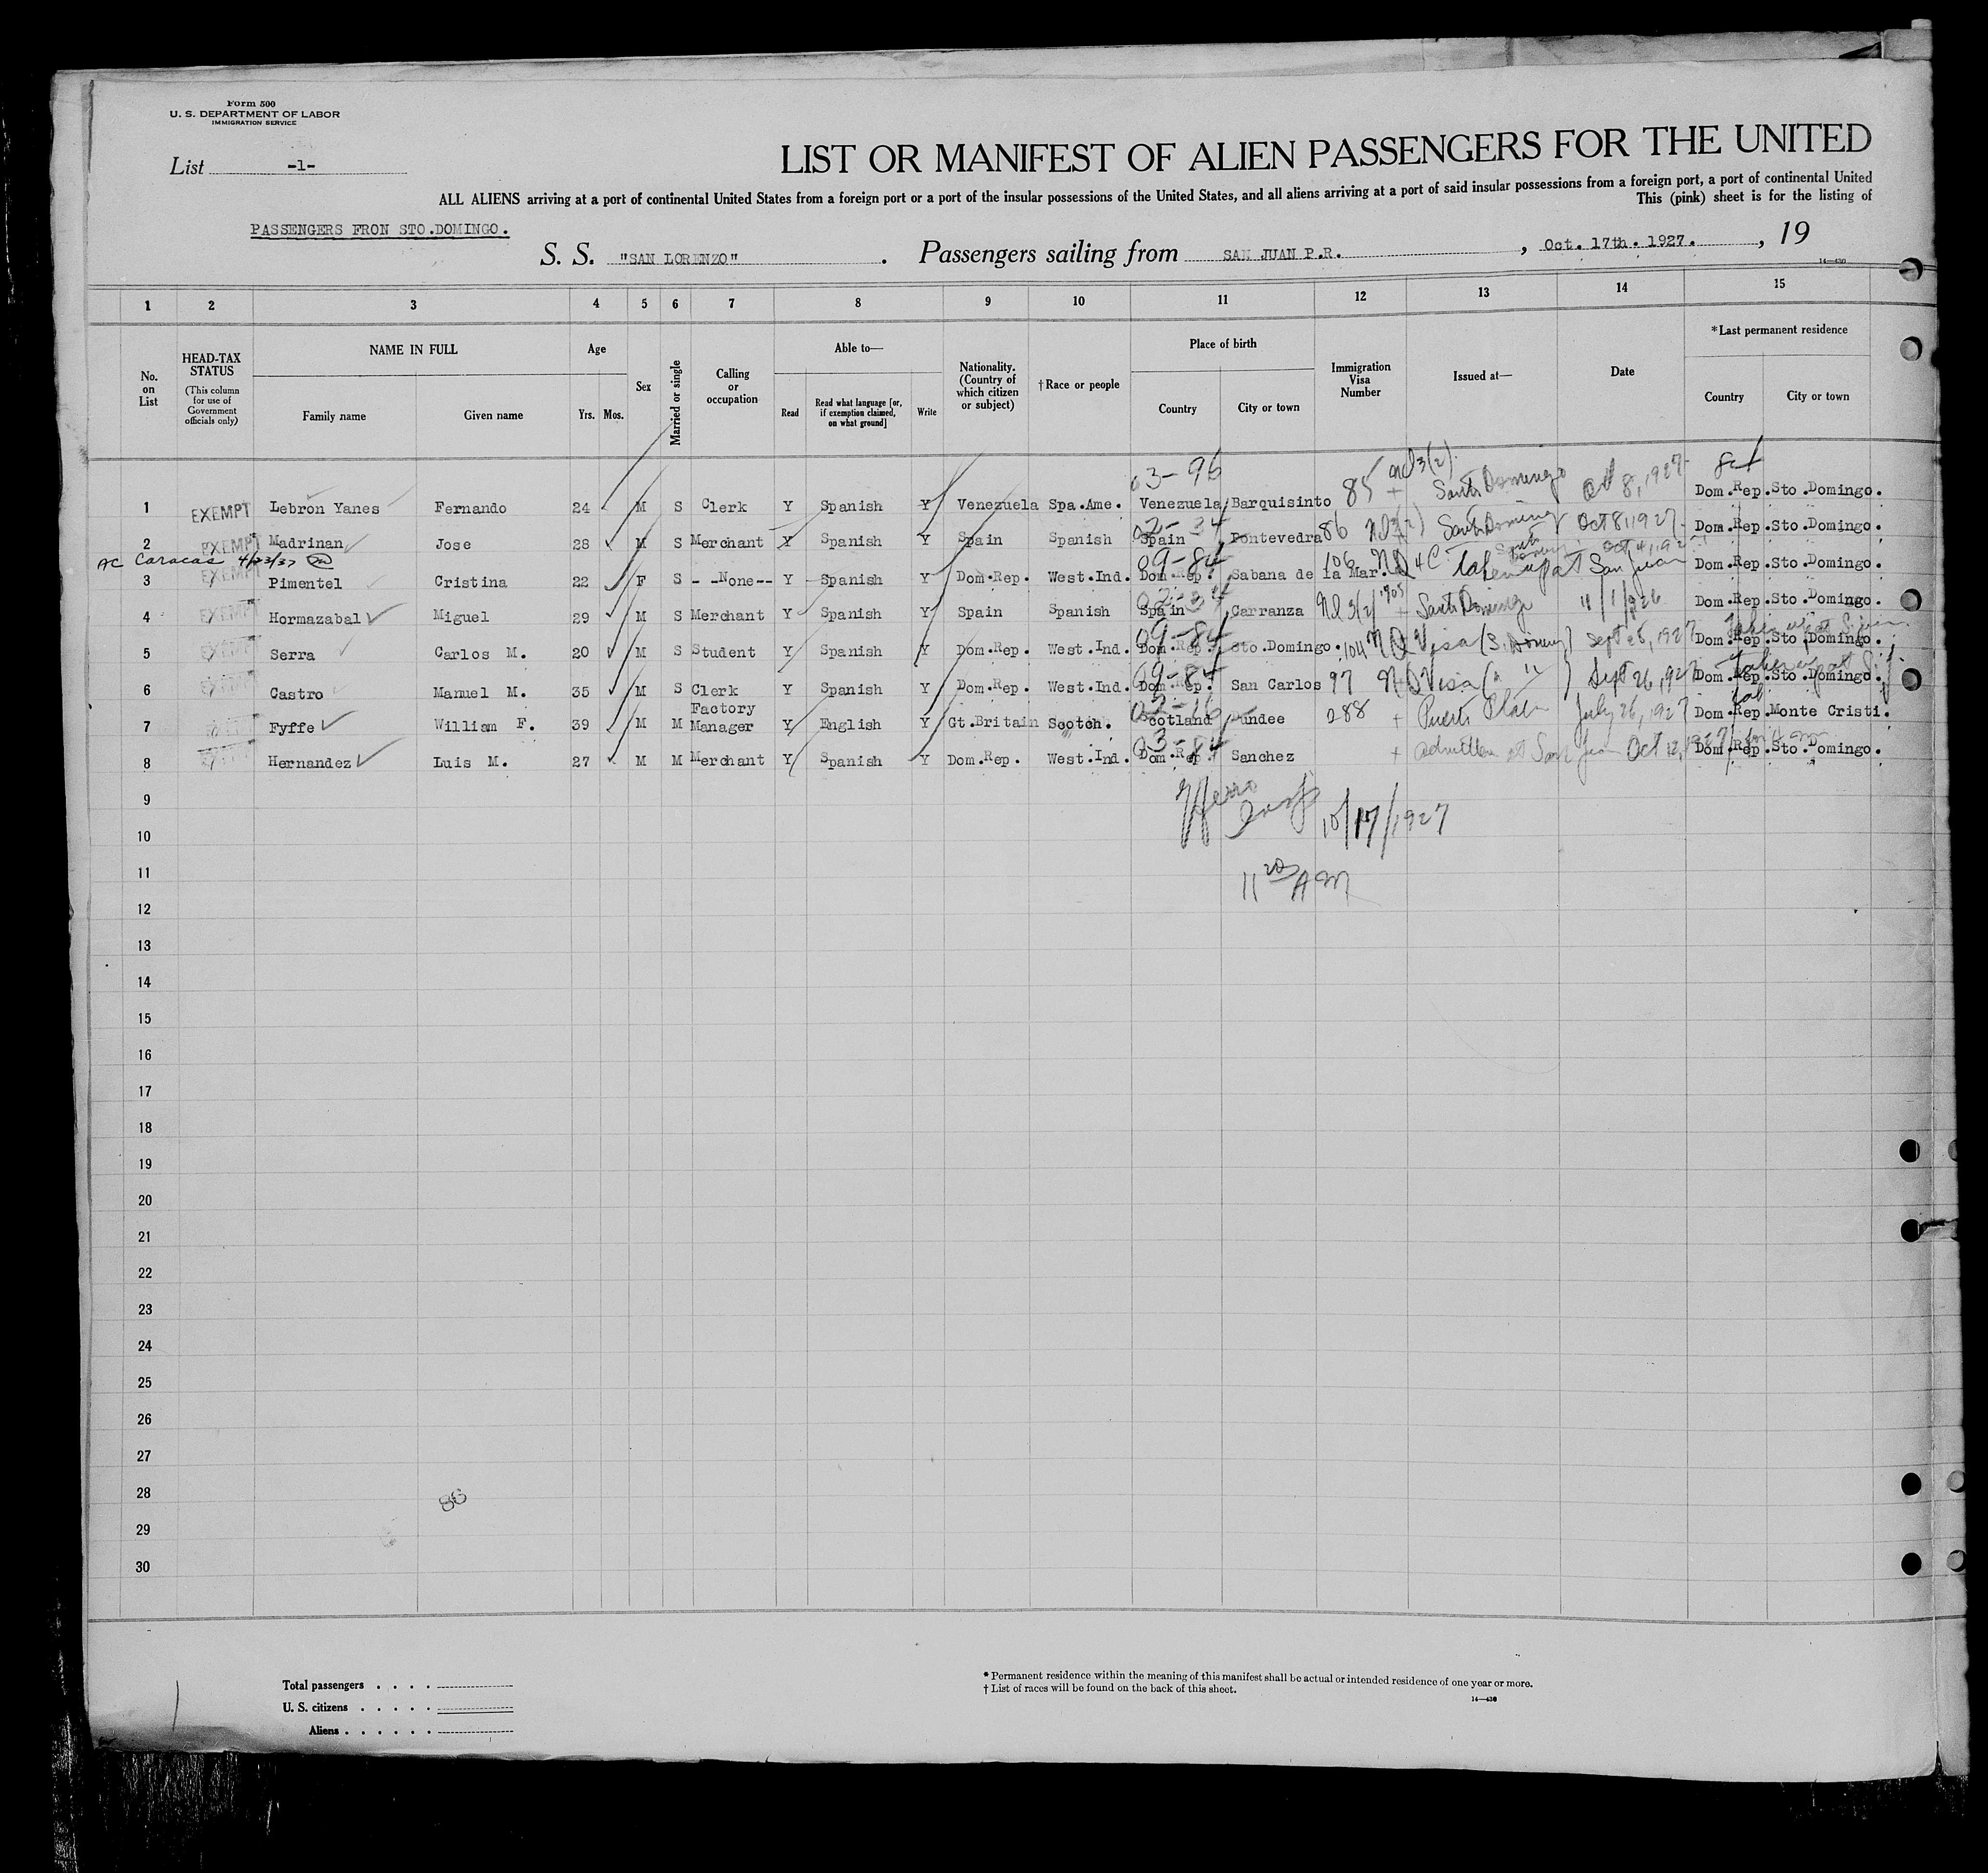 Form 500
U. S. DEPARTMENT OF LABOR
IMMIGRATION SERVICE
List -1-
LIST OR MANIFEST OF ALIEN PASSENGERS FOR THE UNITED
ALL ALIENS arriving at a port of continental United States from a foreign port or a port of the insular possessions of the United States, and all aliens arriving at a port of said insular possessions from a foreign port, a port of continental United
This (pink) sheet is for the listing of
PASSENGERS FRON STO.DOMINGO.
S. S. "SAN LORENZO" . Passengers sailing from SAN JUAN P.R. , Oct. 17th. 1927. , 19
14—430
1 2 3 4 5 6 7 8 9 10 11 12 13 14 15
No. on List
HEAD-TAX STATUS (This column for use of Government officials only)
NAME IN FULL
Family name Given name
Age
Yrs. Mos.
Sex
Married or single
Calling or occupation
Able to—
Read Read what language [or, if exemption claimed, on what ground] Write
Nationality. (Country of which citizen or subject)
†Race or people
Place of birth
Country City or town
Immigration Visa Number
Issued at—
Date
*Last permanent residence
Country City or town
03-96
1 EXEMPT Lebron Yanes Fernando 24 M S Clerk Y Spanish Y Venezuela Spa.Ame. Venezuela Barquisinto 85 Santo Domingo Oct 8, 1927 Dom.Rep. Sto.Domingo.
02-34
2 EXEMPT Madrinan Jose 28 M S Merchant Y Spanish Y Spain Spanish Spain Pontevedra 86 Santo Domingo Oct 8, 1927 Dom.Rep. Sto.Domingo.
AC Caracas 4/23/37
09-84
3 EXEMPT Pimentel Cristina 22 F S - -None-- Y Spanish Y Dom.Rep. West.Ind. Dom.Rep. Sabana de la Mar. 106 taken up at San Juan Dom.Rep. Sto.Domingo.
02-34
4 EXEMPT Hormazabal Miguel 29 M S Merchant Y Spanish Y Spain Spanish Spain Carranza Santo Domingo Dom.Rep. Sto.Domingo.
09-84
5 EXEMPT Serra Carlos M. 20 M S Student Y Spanish Y Dom.Rep. West.Ind. Dom.Rep. Sto.Domingo. 104 Visa Dom.Rep. Sto.Domingo.
09-84
6 EXEMPT Castro Manuel M. 35 M S Clerk Y Spanish Y Dom.Rep. West.Ind. Dom.Rep. San Carlos 97 Visa Sept 26, 1927 Dom.Rep. Sto.Domingo.
7 Fyffe William F. 39 M M Factory Manager Y English Y Gt.Britain Scotch. Scotland Dundee 288 Puerto Plata July 26, 1927 Dom.Rep. Monte Cristi.
8 Hernandez Luis M. 27 M M Merchant Y Spanish Y Dom.Rep. West.Ind. Dom.Rep. Sanchez admitted at San Juan Oct 12, Dom.Rep. Sto.Domingo.
9
10 10/17/1927
11 11 20 AM
12
13
14
15
16
17
18
19
20
21
22
23
24
25
26
27
28 86
29
30
Total passengers . . . .
U. S. citizens . . . . .
Aliens . . . . . .
* Permanent residence within the meaning of this manifest shall be actual or intended residence of one year or more.
† List of races will be found on the back of this sheet.
14—430